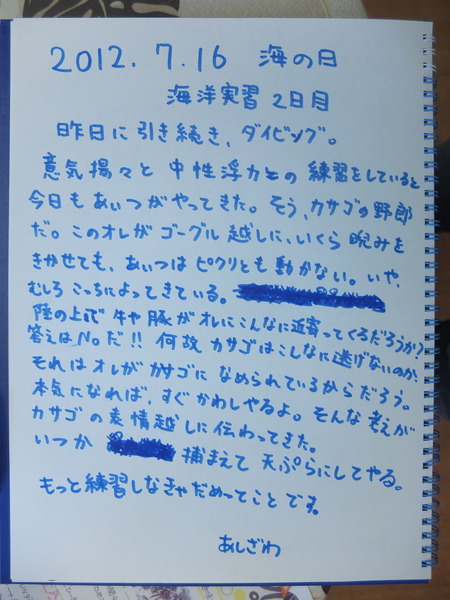 2012.7.16 海の日
海洋実習 2日目
昨日に引き続き、ダイビング。
意気揚々と中性浮力との練習をしていると
今日もあいつがやってきた。そう、カサゴの野郎
だ。このオレがゴーグル越しに、いくら睨みを
きかせても、あいつはピクリとも動かない。いや、
むしろこっちによってきている。
陸の上で牛や豚がオレにこんなに近寄ってくるだろうか?
答えはNoだ!! 何故カサゴはこんなに逃げないのか、
それはオレがカサゴになめられているからだろう。
本気になれば、すぐかわしやるよ。そんな考えが
カサゴの表情越しに伝わってきた。
いつか 捕まえて天ぷらにしてやる。
もっと練習しなきゃだめってことです。
あしざわ